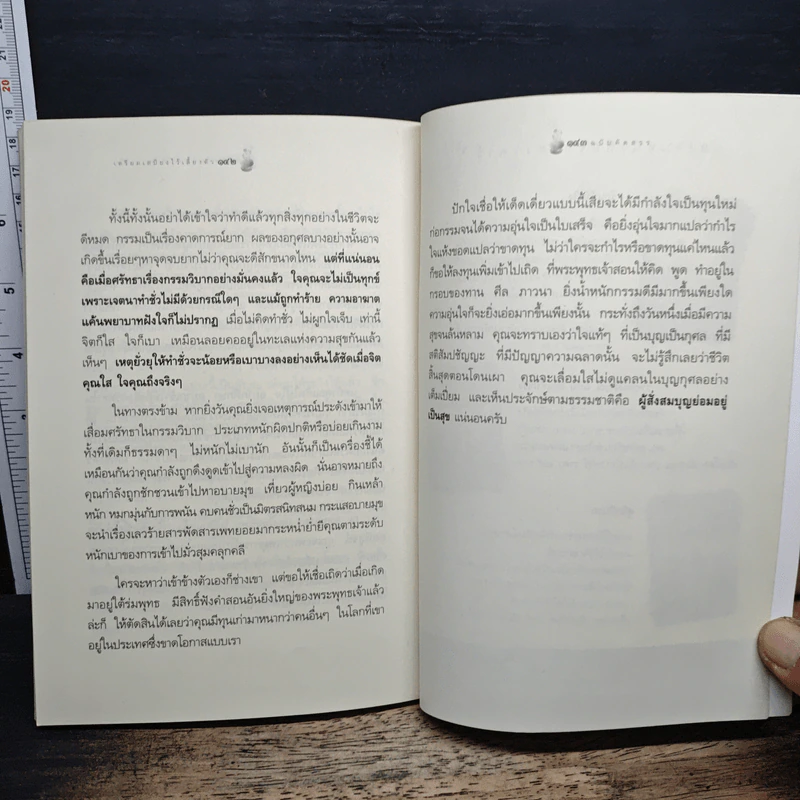 เตรียมเสบียงไว้เลี้ยงตัว ๑๔๒
ทั้งนี้ทั้งนั้นอย่าได้เข้าใจว่าทำดีแล้วทุกสิ่งทุกอย่างในชีวิตจะ
ดีหมด กรรมเป็นเรื่องคาดการณ์ยาก ผลของอกุศลบางอย่างนั้นอาจ
เกิดขึ้นเรื่อยๆหาจุดจบยากไม่ว่าคุณจะดีสักขนาดไหน แต่ที่แน่นอน
คือเมื่อศรัทธาเรื่องกรรมวิบากอย่างมั่นคงแล้ว ใจคุณจะไม่เป็นทุกข์
เพราะเจตนาทำชั่วไม่มีด้วยกรณีใดๆ และแม้ถูกทำร้าย ความอาฆาต
แค้นพยาบาทฝังใจก็ไม่ปรากฏ เมื่อไม่คิดทำชั่ว ไม่ผูกใจเจ็บ เท่านี้
จิตก็ใส ใจก็เบา เหมือนลอยคออยู่ในทะเลแห่งความสุขกันแล้ว
เห็นๆ เหตุยั่วยุให้ทำชั่วจะน้อยหรือเบาบางลงอย่างเห็นได้ชัดเมื่อจิต
คุณใส ใจคุณถึงจริงๆ
ในทางตรงข้าม หากยิ่งวันคุณยิ่งเจอเหตุการณ์ประดังเข้ามาให้
เสื่อมศรัทธาในกรรมวิบาก ประเภทหนักผิดปกติหรือบ่อยเกินงาม
ทั้งที่เดิมก็ธรรมดาๆ ไม่หนักไม่เบานัก อันนั้นก็เป็นเครื่องชี้ได้
เหมือนกันว่าคุณกำลังถูกดึงดูดเข้าไปสู่ความหลงผิด นั่นอาจหมายถึง
คุณกำลังถูกชักชวนเข้าไปหาอบายมุข เที่ยวผู้หญิงบ่อย กินเหล้า
หนัก หมกมุ่นกับการพนัน คบคนชั่วเป็นมิตรสนิทสนม กระแสอบายมุข
จะนำเรื่องเลวร้ายสารพัดสารเพทยอยมากระหน่ำย่ำยีคุณตามระดับ
หนักเบาของการเข้าไปมั่วสุมคลุกคลี
ใครจะหาว่าเข้าข้างตัวเองก็ช่างเขา แต่ขอให้เชื่อเถิดว่าเมื่อเกิด
มาอยู่ใต้ร่มพุทธ มีสิทธิ์ฟังคำสอนอันยิ่งใหญ่ของพระพุทธเจ้าแล้ว
ล่ะก็ ให้ตัดสินได้เลยว่าคุณมีทุนเก่ามาหนากว่าคนอื่นๆ ในโลกที่เขา
อยู่ในประเทศซึ่งขาดโอกาสแบบเรา
๑๔๓ ฉบับคิดสรร
ปักใจเชื่อให้เด็ดเดี่ยวแบบนี้เสียจะได้มีกำลังใจเป็นทุนใหม่
ก่อกรรมจนได้ความอุ่นใจเป็นใบเสร็จ คือยิ่งอุ่นใจมากแปลว่ากำไร
ใจแห้งขอดแปลว่าขาดทุน ไม่ว่าใครจะกำไรหรือขาดทุนแค่ไหนแล้ว
ก็ขอให้ลงทุนเพิ่มเข้าไปเถิด ที่พระพุทธเจ้าสอนให้คิด พูด ทำอยู่ใน
กรอบของทาน ศีล ภาวนา ยิ่งน้ำหนักกรรมดีมีมากขึ้นเพียงใด
ความอุ่นใจก็จะยิ่งเอ่อมากขึ้นเพียงนั้น กระทั่งถึงวันหนึ่งเมื่อมีความ
สุขจนล้นหลาม คุณจะทราบเองว่าใจแท้ๆ ที่เป็นบุญเป็นกุศล ที่มี
สติสัมปชัญญะ ที่มีปัญญาความฉลาดนั้น จะไม่รู้สึกเลยว่าชีวิต
สิ้นสุดตอนโดนเผา คุณจะเลื่อมใสไม่ดูแคลนในบุญกุศลอย่าง
เต็มเปี่ยม และเห็นประจักษ์ตามธรรมชาติคือ ผู้สั่งสมบุญย่อมอยู่
เป็นสุข แน่นอนครับ